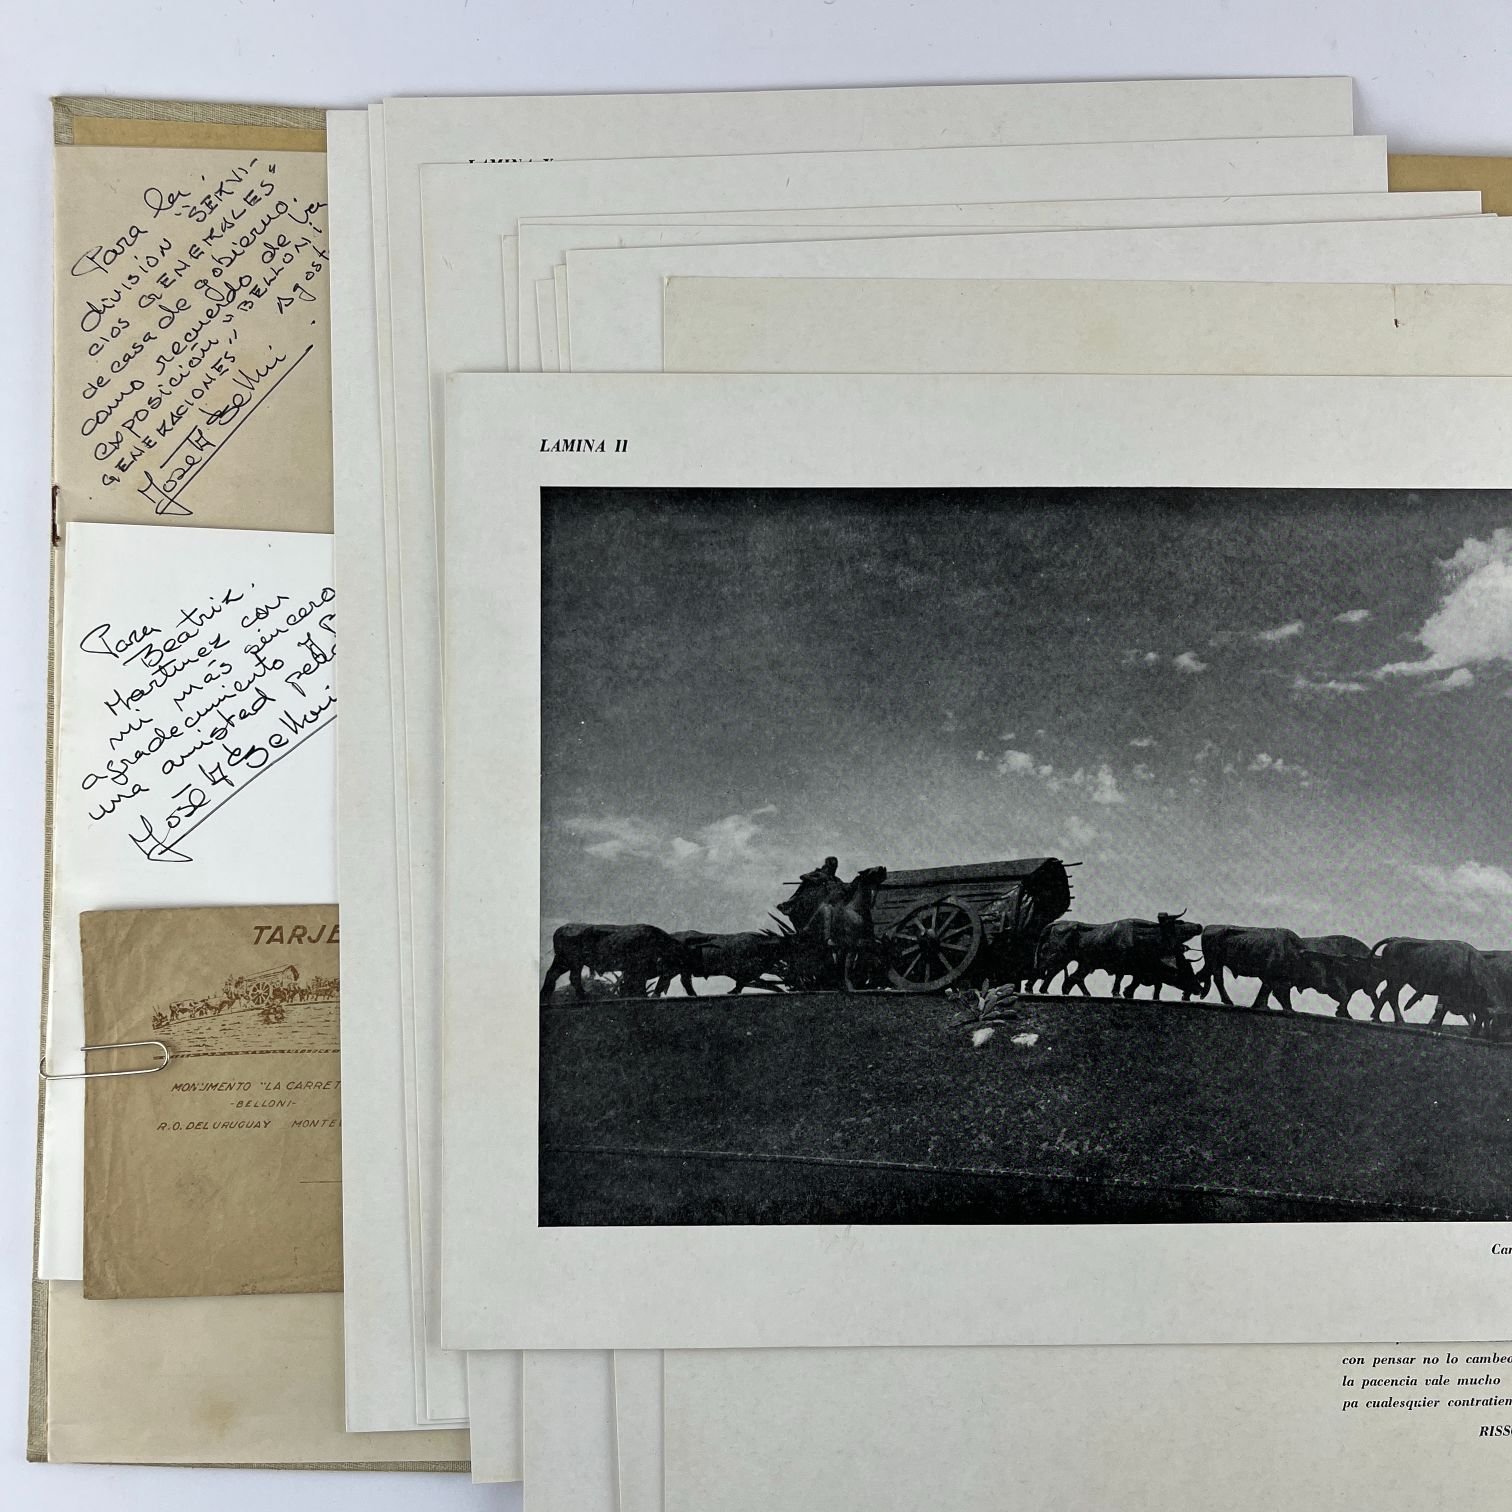 Para la
división "SERVI-
CIOS GENERALES"
de casa de gobierno.
como recuerdo de la
exposición "BELLONI
GENERACIONES" Agost
José H Belloni
Para
Beatriz
Martínez con
mi más sincero
agradecimiento y p
una amistad
José H Belloni
TARJE
MONUMENTO "LA CARRET
-BELLONI-
R.O. DEL URUGUAY MONTEV
LAMINA X
LAMINA II
Car
con pensar no lo cambeo
la pacencia vale mucho
pa cualesquier contratiem
RISSO